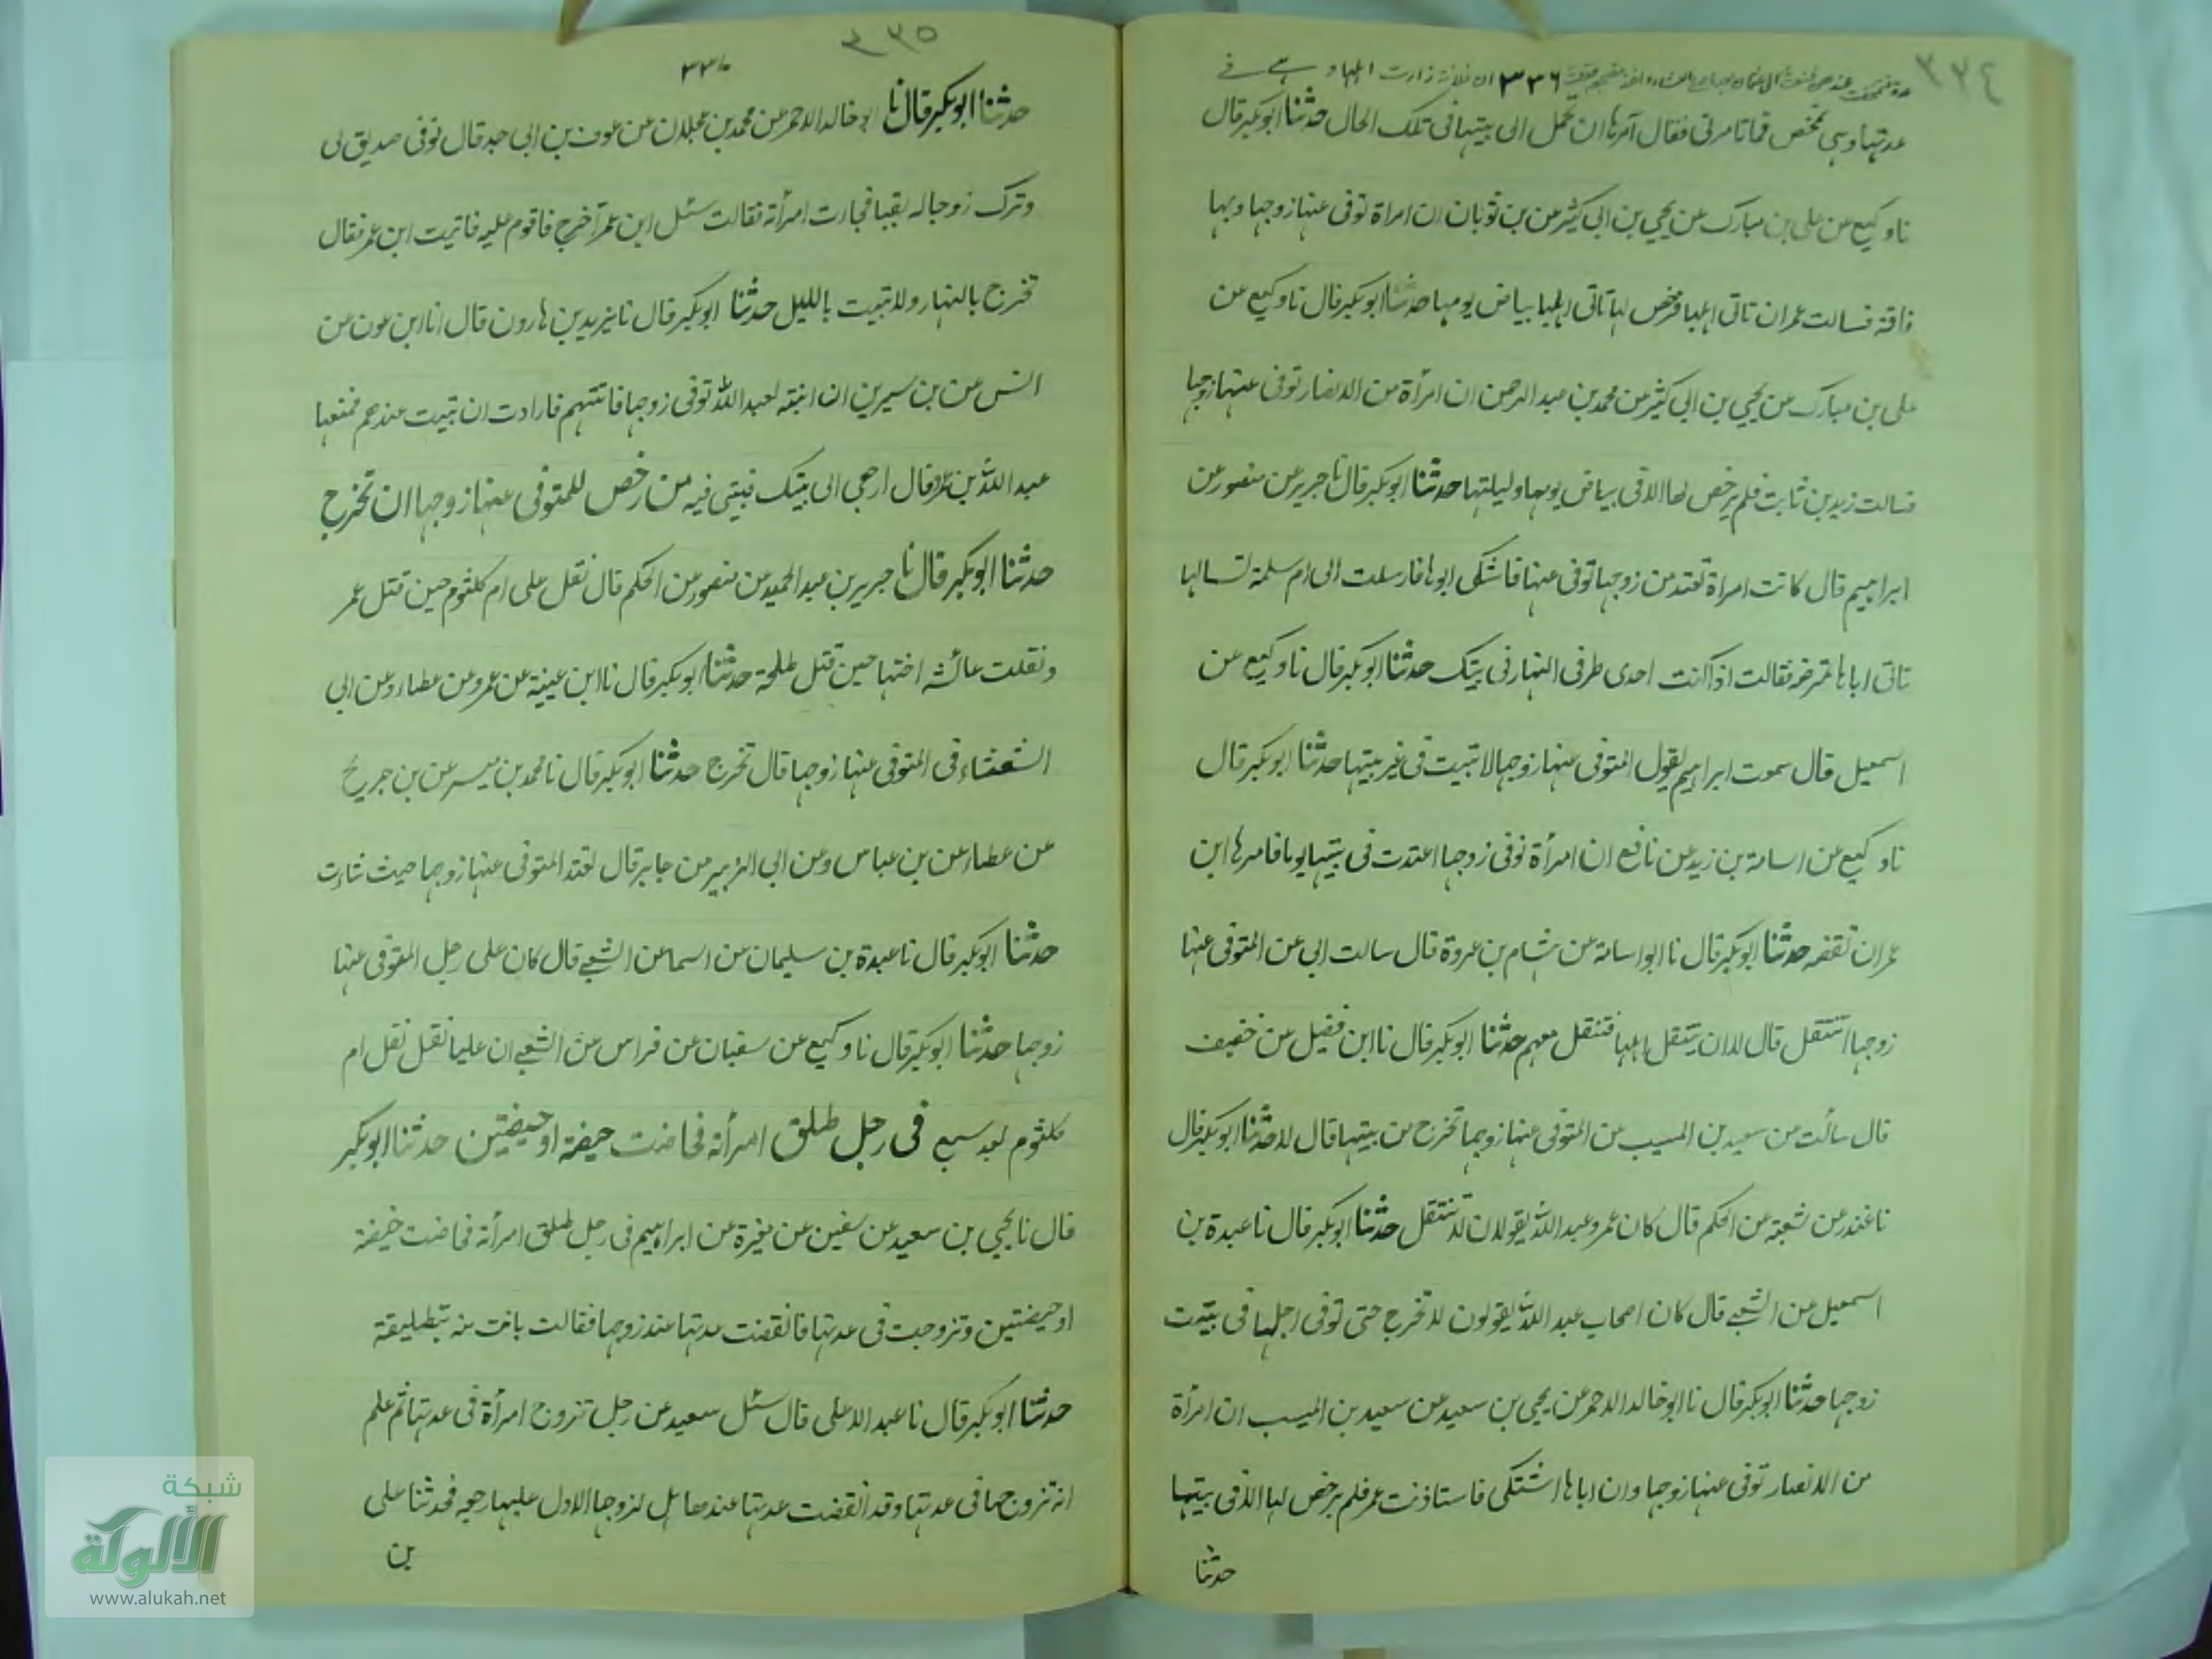 ٣٣٤
٣٣٦ ان فلانة زارت اهلها وهي في
عدتها وهي تمخض فما تامرني فقال آمرها ان تحمل الى بيتها في تلك الحال حدثنا ابوبكر قال
نا وكيع عن على بن مبارك عن يحيي بن ابى كثير عن بن ثوبان ان امراة توفى عنها زوجها وبها
فاقة فسالت عمر ان تاتى اهلها فرخص لها تاتى اهلها بياض يومها حدثنا ابوبكر قال نا وكيع عن
على بن مبارك عن يحيي بن ابى كثير عن محمد بن عبد الرحمن ان امرأة من الانصار توفى عنها زوجها
فسالت زيد بن ثابت فلم يرخص لها الا فى بياض يومها وليلتها حدثنا ابوبكر قال نا جرير عن منصور عن
ابراهيم قال كانت امراة تعتد من زوجها توفى عنها فاشتكى ابوها فارسلت الى ام سلمة تسالها
تاتى اباها تمرضه فقالت اذا كنت احدى طرفى النهار فى بيتك حدثنا ابوبكر قال نا وكيع عن
اسمعيل قال سمعت ابراهيم يقول المتوفى عنها زوجها لا تبيت فى غير بيتها حدثنا ابوبكر قال
نا وكيع عن اسامة بن زيد عن نافع ان امرأة توفى زوجها اعتدت فى بيتها يوما فامرها ابن
عمر ان تقضه حدثنا ابوبكر قال نا ابو اسامة عن هشام بن عروة قال سالت ابى عن المتوفى عنها
زوجها اتنتقل قال لا الا ان ينتقل اهلها فتنتقل معهم حدثنا ابوبكر قال نا ابن فضيل عن خصيف
قال سألت من سعيد بن المسيب عن المتوفى عنها زوجها تخرج من بيتها قال لا حدثنا ابوبكر قال
نا غندر عن شعبة عن الحكم قال كان عمر وعبد الله يقولان لا تنتقل حدثنا ابوبكر قال نا عبدة بن
اسمعيل عن الشعبي قال كان اصحاب عبد الله يقولون لا تخرج حتى توفى اجلها فى بيت
زوجها حدثنا ابوبكر قال نا ابو خالد الاحمر عن يحيى بن سعيد عن سعيد بن المسيب ان امرأة
من الانصار توفى عنها زوجها وان اباها اشتكى فاستاذنت عمر فلم يرخص لها الا فى بيتها
حدثنا
٣٣٥
٣٣٧
حدثنا ابوبكر قال نا ابو خالد الاحمر عن محمد بن عجلان عن عون بن ابى حمد قال توفى صديق لى
وترك زوجا له بقبا فجارت امرأته فقالت سئل ابن عمر أخرج فاقوم عليه فاتيت ابن عمر فقال
تخرج بالنهار ولا تبيت بالليل حدثنا ابوبكر قال نا يزيد بن هارون قال انا ابن عون عن
انس عن بن سيرين ان ابنته لعبد الله توفى زوجها فاتتهم فارادت ان تبيت عندهم فمنعها
عبد الله بن عمر وقال ارجعى الى بيتك فبيتى فيه من رخص للمتوفى عنها زوجها ان تخرج
حدثنا ابوبكر قال نا جرير بن عبد الحميد عن منصور عن الحكم قال نقل على ام كلثوم حين قتل عمر
ونقلت عائشه اختها حين قتل طلحة حدثنا ابوبكر قال نا ابن عيينة عن عمرو عن عطاء وعن ابى
الشعثاء فى المتوفى عنها زوجها قال تخرج حدثنا ابوبكر قال نا محمد بن ميسر عن بن جريج
عن عطاء عن بن عباس وعن ابى الزبير عن جابر قال تعتد المتوفى عنها زوجها حيث شاءت
حدثنا ابوبكر قال نا عبدة بن سليمان عن اسما عن الشعبي قال كان على رحل المتوفى عنها
زوجها حدثنا ابوبكر قال نا وكيع عن سفيان عن فراس عن الشعبي ان عليا نقل نقل ام
كلثوم بعد سبع فى رجل طلق امرأته فحاضت حيضة او حيضتين حدثنا ابوبكر
قال نا يحيي بن سعيد عن سفين عن مغيرة عن ابراهيم فى رجل طلق امرأته فحاضت حيضة
او حيضتين وتزوجت فى عدتها فانقضت عدتها عند زوجها فقالت بانت منه بتطليقة
حدثنا ابوبكر قال نا عبد الاعلى قال سئل سعيد عن رجل تزوج امرأة فى عدتها ثم علم
انه تزوجها فى عدتها وقد انقضت عدتها عنده هل لزوجها الاول عليها رجعه فحدثنا على
بن
شبكة
الألوكة
www.alukah.net